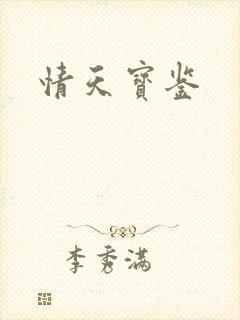 情天寳鉴
李秀满